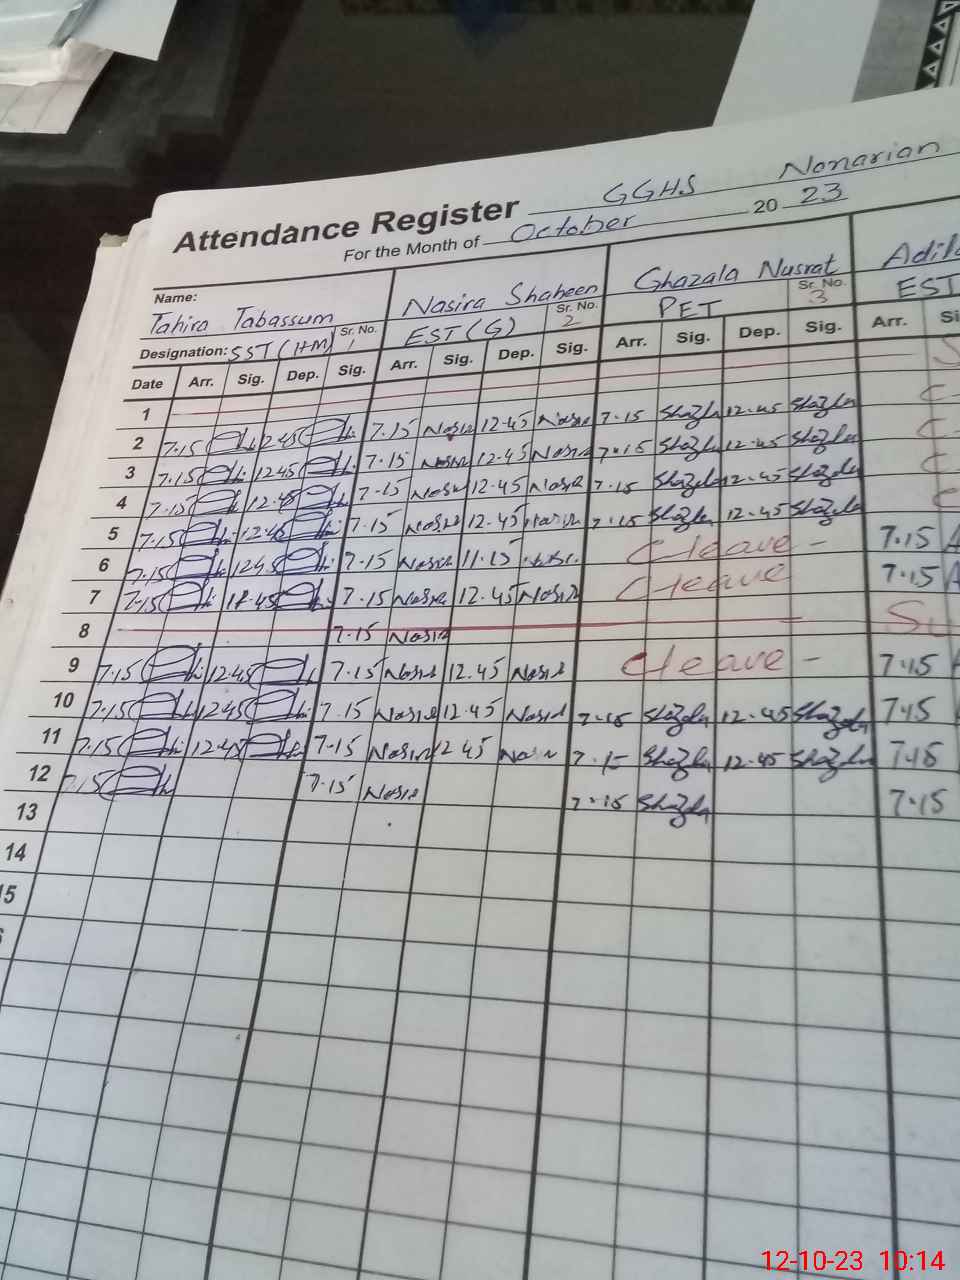 GGHS Nonarian
Attendance Register
For the Month of October 20 23
Name: Tahira Tabassum Nasira Shaheen Ghazala Nusrat
Designation: SST (HM) Sr. No. 1 EST (G) Sr. No. 2 PET Sr. No. 3 EST
Date Arr. Sig. Dep. Sig. Arr. Sig. Dep. Sig. Arr. Sig. Dep. Sig. Arr.
1
2 7.15 12.45 7.15 Nasira 12.45 Nasira 7.15 Shazla 12.45 Shazla
3 7.15 12.45 7.15 Nasira 12.45 Nasira 7.15 Shazla 12.45 Shazla
4 7.15 12.45 7.15 Nasira 12.45 Nasira 7.15 Shazla 12.45 Shazla
5 7.15 12.45 7.15 Nasira 12.45 7.15 Shazla 12.45 Shazla
6 7.15 12.45 7.15 Nasira 11.15 C leave - 7.15
7 7.15 12.45 7.15 Nasira 12.45 Nasira C leave 7.15
8 7.15 Nasir
9 7.15 12.45 7.15 Nasira 12.45 Nasira C leave - 7.15
10 7.15 12.45 7.15 Nasira 12.45 Nasira 7.15 Shazla 12.45 Shazla 7.15
11 7.15 12.45 7.15 Nasira 12 45 7.15 Shazla 12.45 Shazla 7.15
12 7.15 7.15 Nasira 7.15 Shazla 7.15
13
14
15
12-10-23 10:14